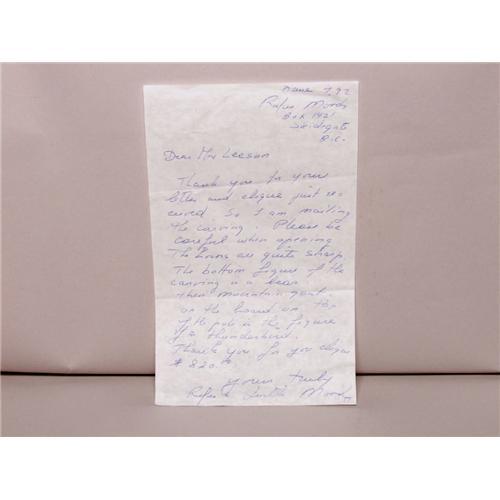 June 7, 92
Rufus Moody
Box 1421
Skidegate
B.C.
Dear Mr Leeson
Thank you for your
letter and cheque just re
ceived So I am mailing
the carving. Please be
careful when opening
The horns are quite sharp
The bottom figure of the
carving is a bear
then mountain goat
on the board on top
of the pole is the figure
of a thunderbird.
Thank you for you cheque
$ 820.
yours truly
Rufus & Moody